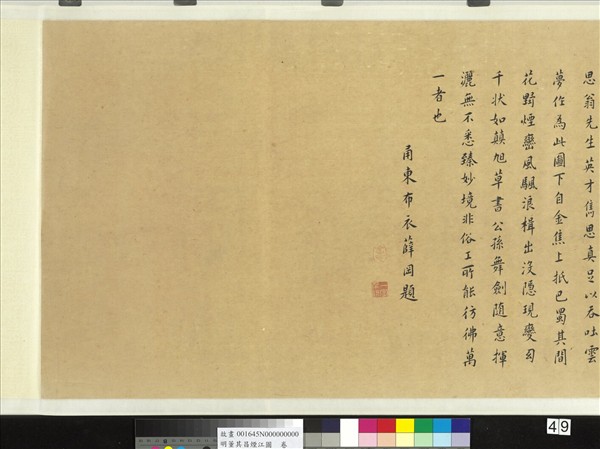 思翁先生英才雋思真足以吞吐雲
夢作為此圖下自金焦上抵巴蜀其間
花野煙巒風颿浪楫出沒隱現變幻
千狀如顛旭草書公孫舞劍隨意揮
灑無不悉臻妙境非俗工所能彷彿萬
一者也
甬東布衣薛岡題
故畫 001645N000000000
明董其昌煙江圖 卷
49